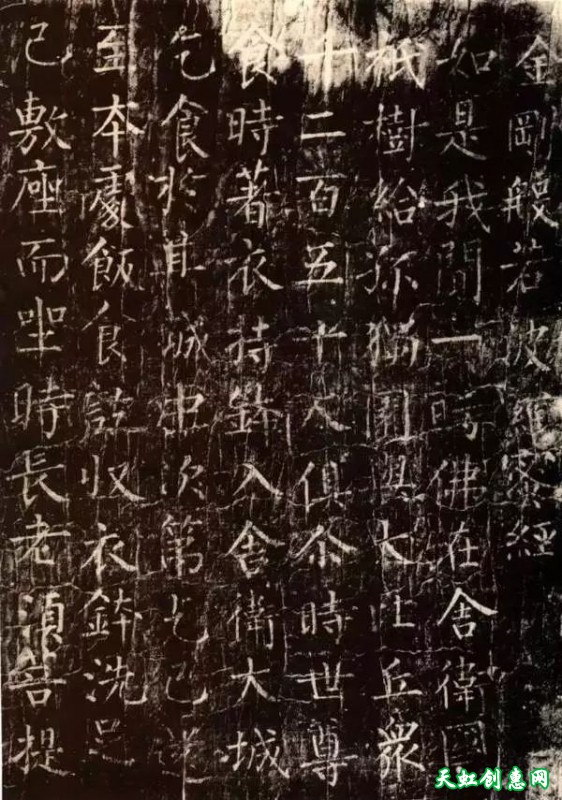 金剛般若波羅蜜經
如是我聞一時佛在舍衛國
祇樹給孤獨園與大比丘衆
千二百五十人俱尒時世尊
食時著衣持鉢入舍衛大城
乞食於其城中次第乞已還
至本處飯食訖収衣鉢洗足
已敷座而坐時長老須菩提
天虹创惠网